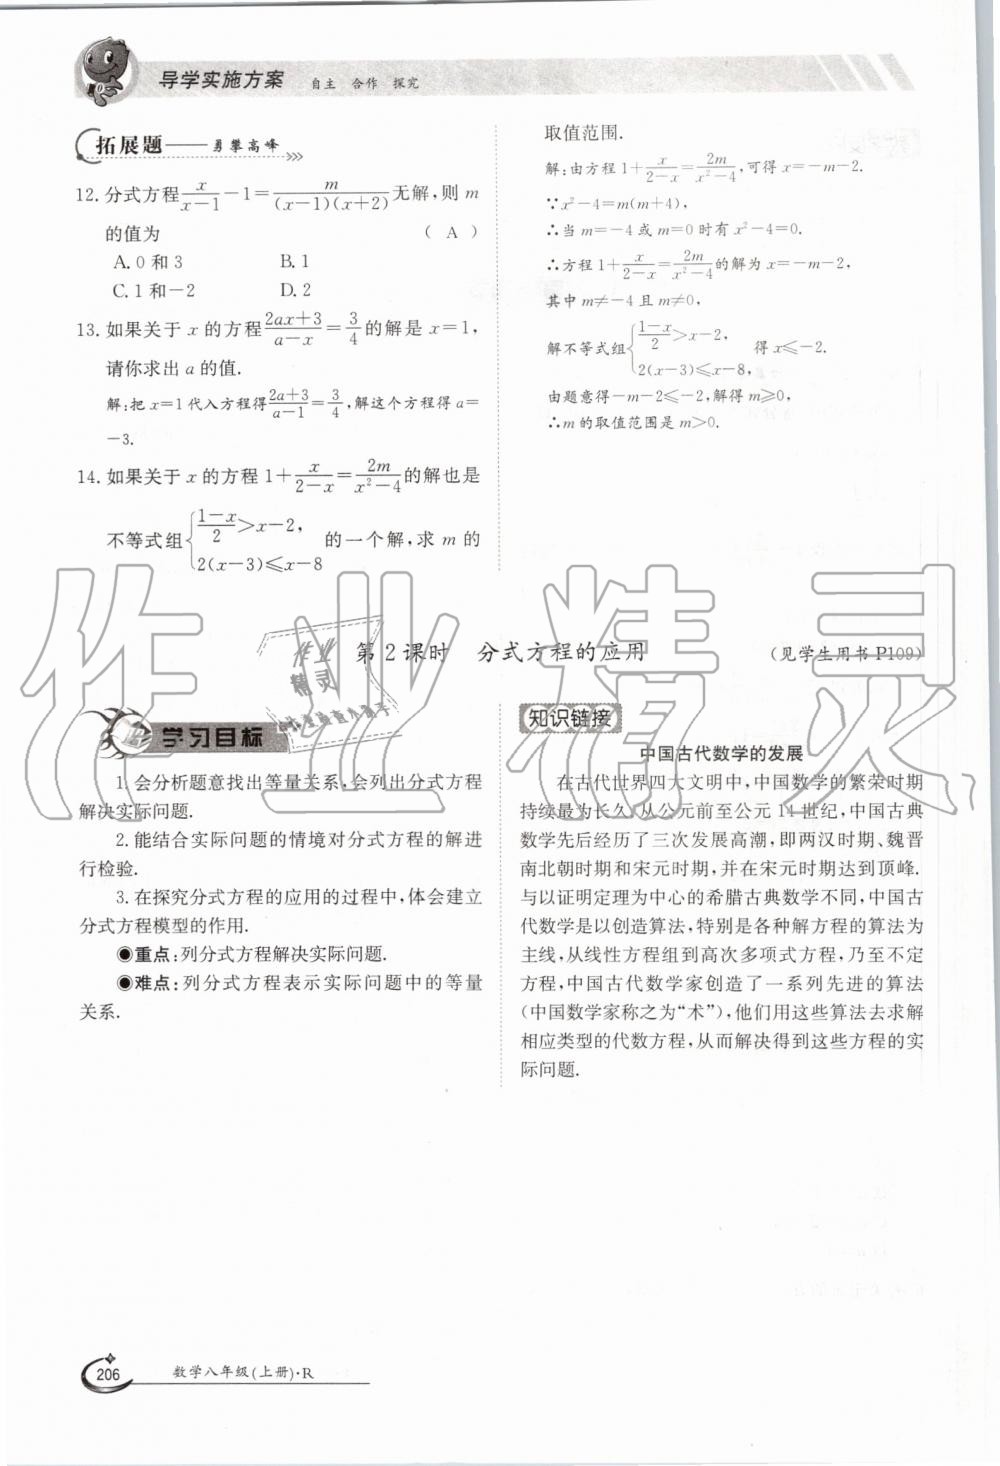 导学实施方案 自主 合作 探究
拓展题——勇攀高峰
12. 分式方程x/(x−1)−1=m/((x−1)(x+2))无解,则 m
的值为 ( A )
A. 0 和 3 B. 1
C. 1 和−2 D. 2
13. 如果关于 x 的方程(2ax+3)/(a−x)=3/4的解是 x=1,
请你求出 a 的值.
解:把 x=1 代入方程得(2a+3)/(a−1)=3/4,解这个方程得 a=
−3.
14. 如果关于 x 的方程 1+x/(2−x)=2m/(x²−4)的解也是
不等式组{(1−x)/2>x−2, 2(x−3)≤x−8 的一个解,求 m 的
取值范围.
解:由方程 1+x/(2−x)=2m/(x²−4),可得 x=−m−2.
∵x²−4=m(m+4),
∴当 m=−4 或 m=0 时有 x²−4=0.
∴方程 1+x/(2−x)=2m/(x²−4)的解为 x=−m−2,
其中 m≠−4 且 m≠0,
解不等式组{(1−x)/2>x−2, 2(x−3)≤x−8, 得 x≤−2.
由题意得−m−2≤−2,解得 m≥0,
∴m 的取值范围是 m>0.
第 2 课时 分式方程的应用 (见学生用书 P109)
学习目标
1. 会分析题意找出等量关系,会列出分式方程
解决实际问题.
2. 能结合实际问题的情境对分式方程的解进
行检验.
3. 在探究分式方程的应用的过程中,体会建立
分式方程模型的作用.
◉重点:列分式方程解决实际问题.
◉难点:列分式方程表示实际问题中的等量
关系.
知识链接
中国古代数学的发展
在古代世界四大文明中,中国数学的繁荣时期
持续最为长久.从公元前至公元 14 世纪,中国古典
数学先后经历了三次发展高潮,即两汉时期、魏晋
南北朝时期和宋元时期,并在宋元时期达到顶峰.
与以证明定理为中心的希腊古典数学不同,中国古
代数学是以创造算法,特别是各种解方程的算法为
主线,从线性方程组到高次多项式方程,乃至不定
方程,中国古代数学家创造了一系列先进的算法
(中国数学家称之为“术”),他们用这些算法去求解
相应类型的代数方程,从而解决得到这些方程的实
际问题.
作业精灵
作业
精灵
206 数学八年级(上册)·R